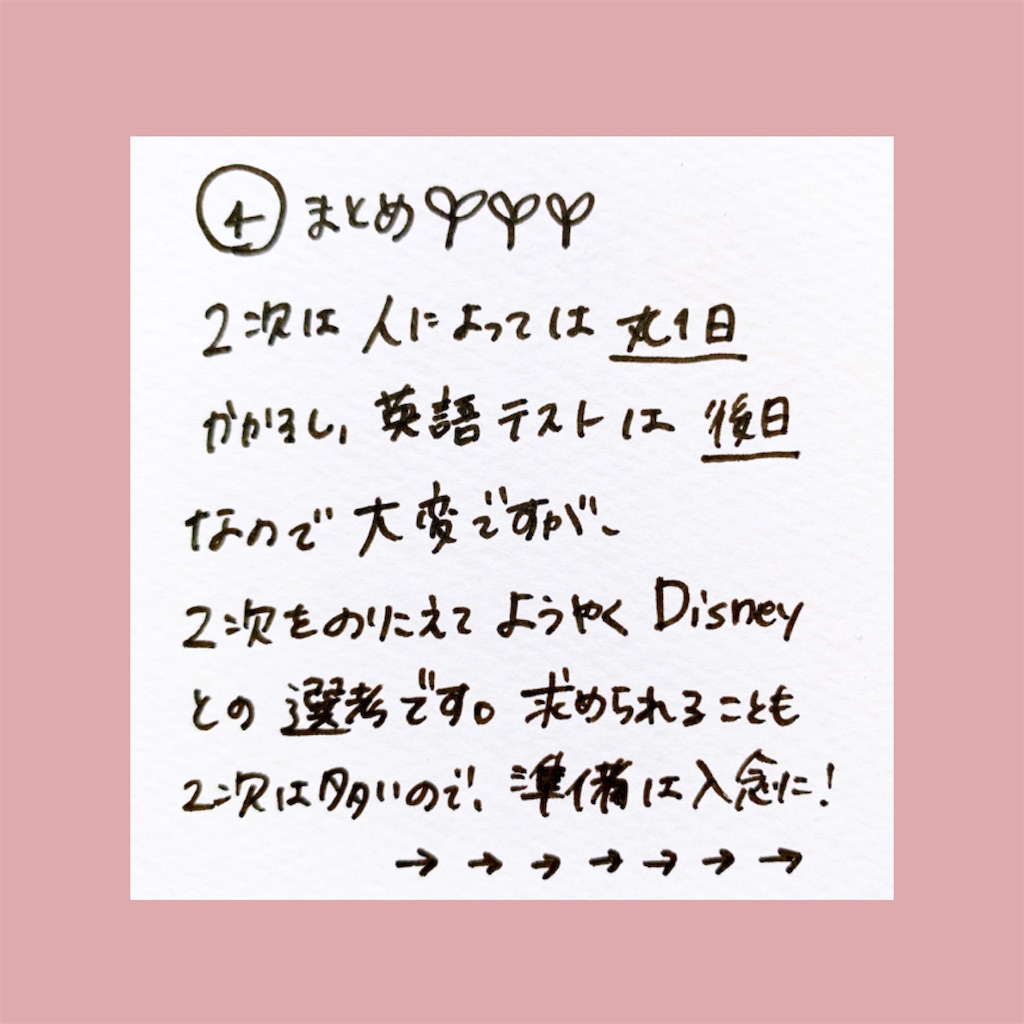 ④ まとめ
2次は 人によっては 丸1日
かかるし、英語テストは 後日
なので 大変ですが、
2次をのりこえて ようやく Disney
との 選考です。求められることも
2次は多いので、準備は入念に!
→ → → → → → →